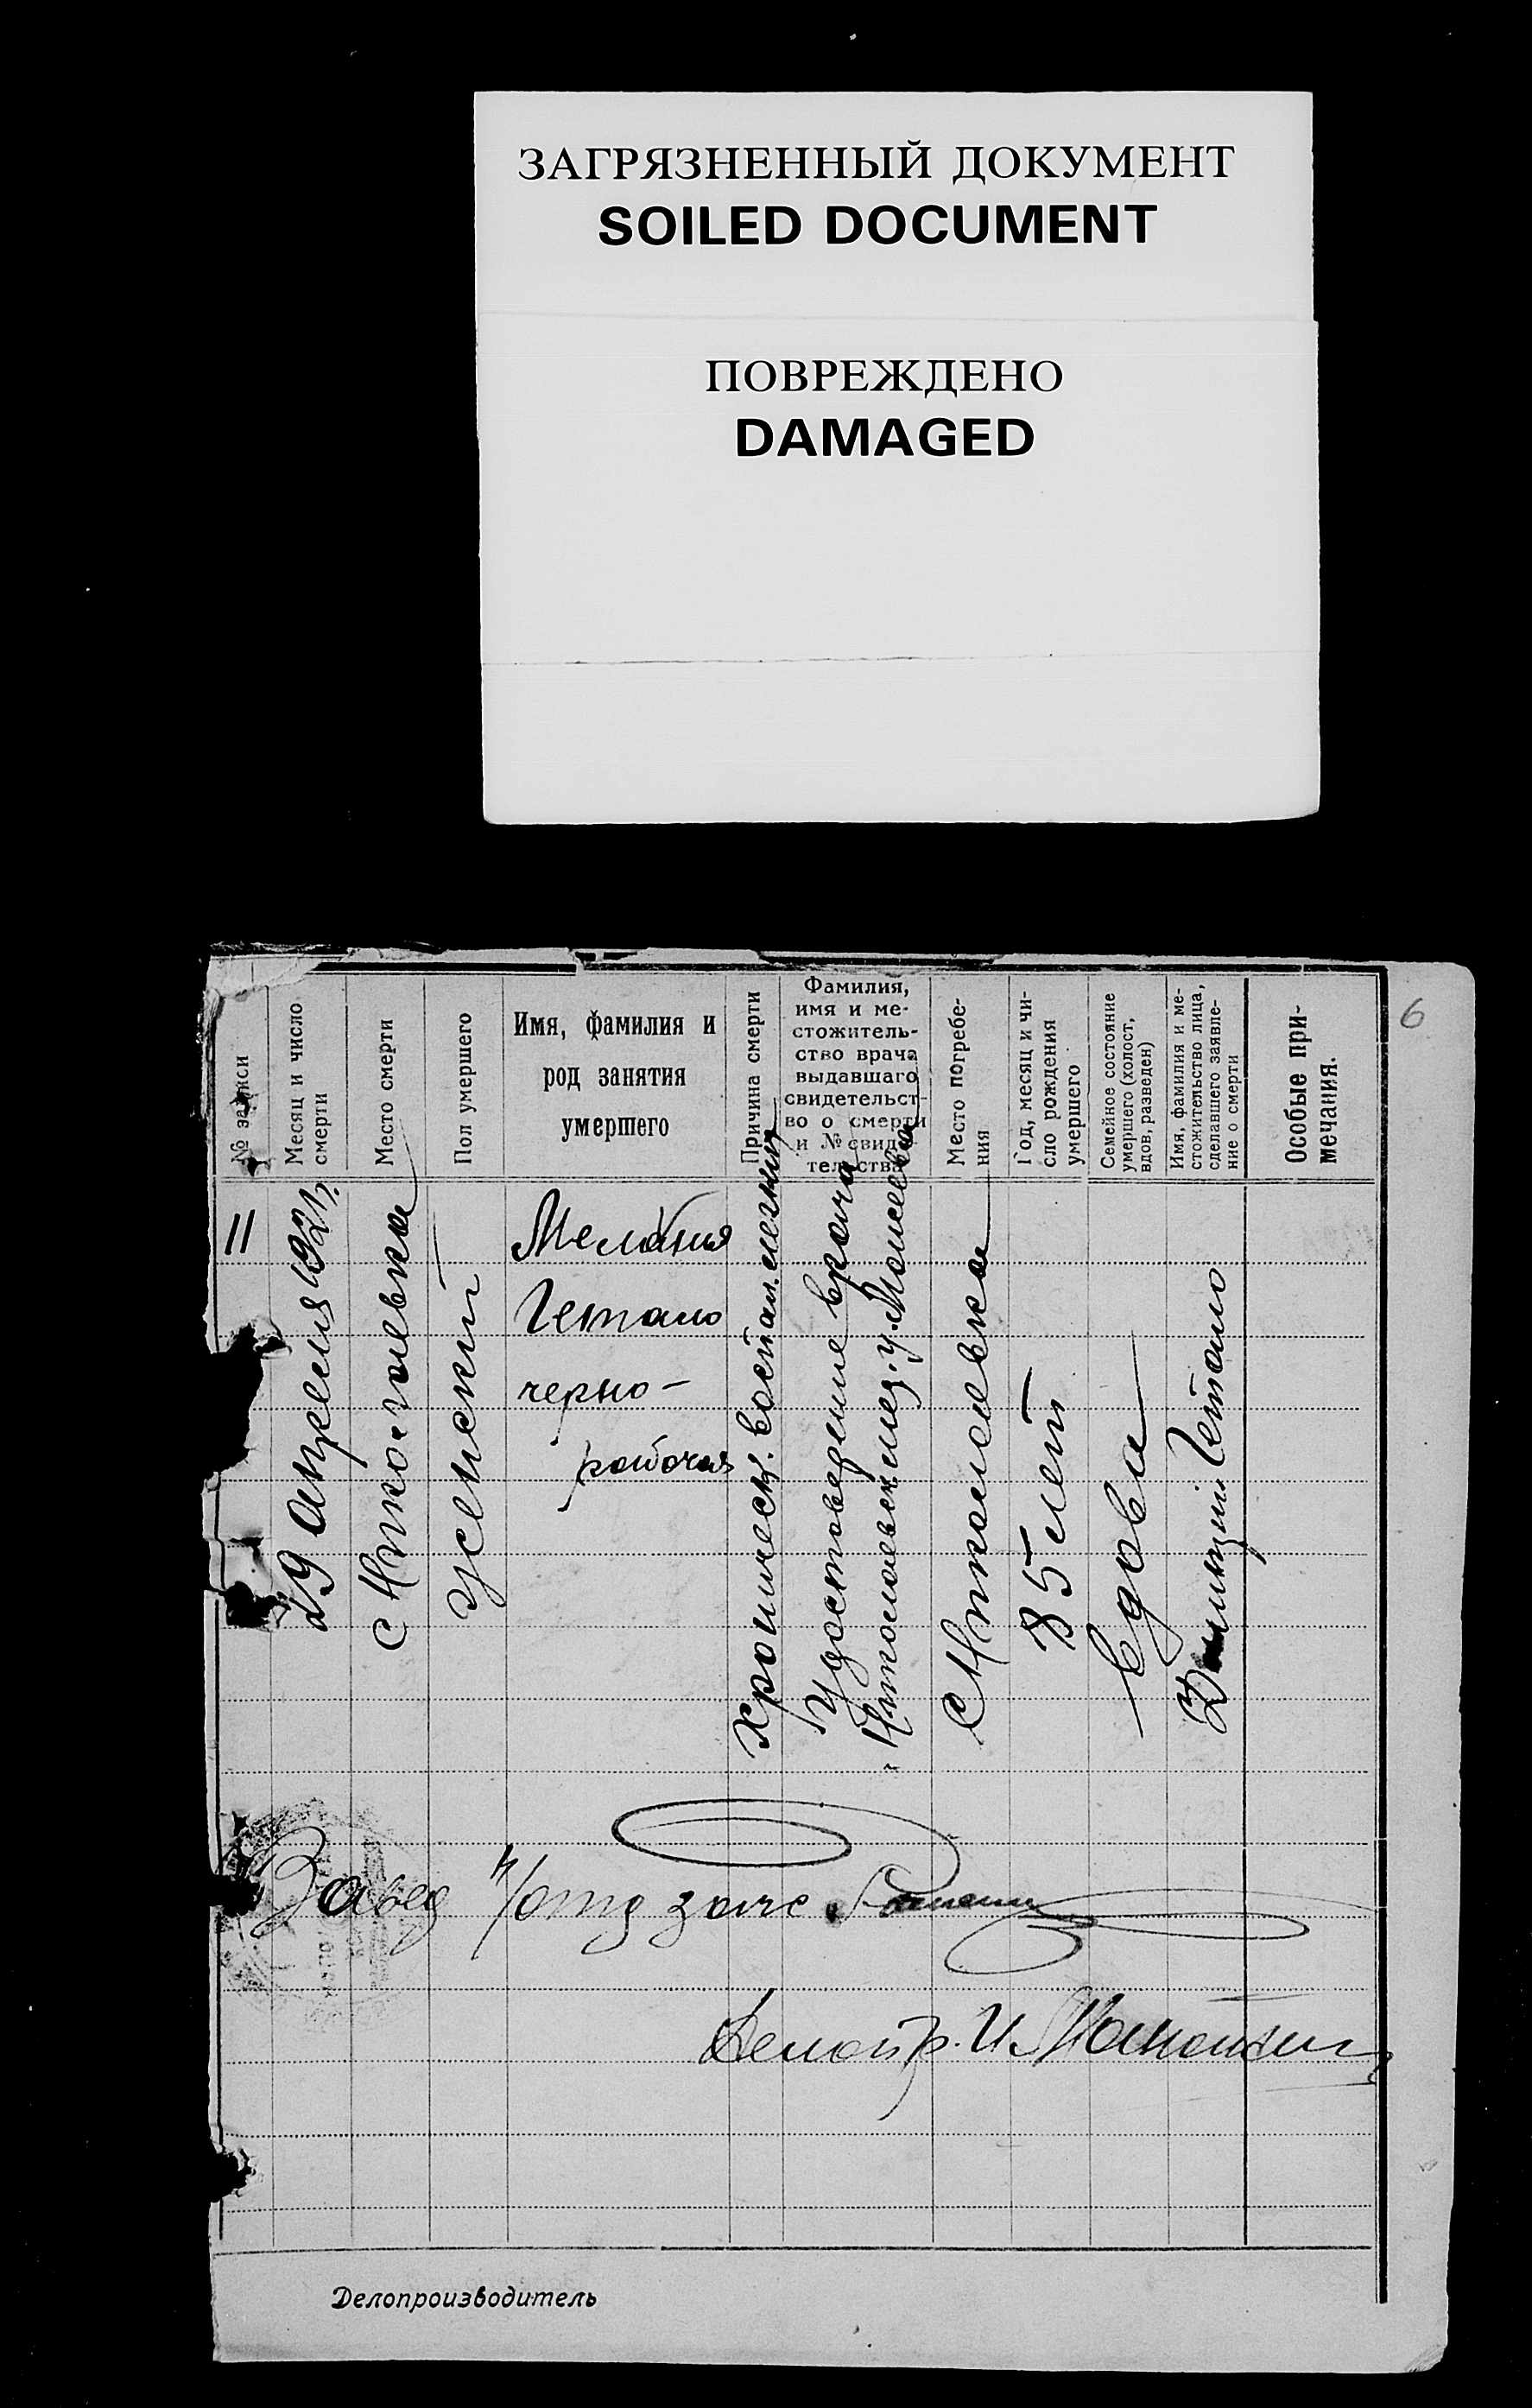 ЗАГРЯЗНЕННЫЙ ДОКУМЕНТ
SOILED DOCUMENT
ПОВРЕЖДЕНО
DAMAGED
6
№ записи
Месяц и число
смерти
Место смерти
Пол умершего
Имя, фамилия и
род занятия
умершего
Причина смерти
Фамилия,
имя и ме-
стожитель-
ство врача
выдавшаго
свидетельст-
во о смерти
и № свиде-
тельства
Место погребе-
ния
Год, месяц и чи-
сло рождения
умершего
Семейное состояние
умершего (холост,
вдов, разведен)
Имя, фамилия и ме-
стожительство лица,
сделавшего заявле-
ние о смерти
Особые при-
мечания.
11
29 апреля 1921 г.
с Николаевка
женский
Мелания
Гетало
черно-
рабочая
Хроническ. воспал. легких
Удостоверение врача
Николаевск. мед. у. Моисеева
с Николаевка
85 лет
вдова
Дмитрий Гетало
Завед п/отд загс
Делопр. И.
Делопроизводитель